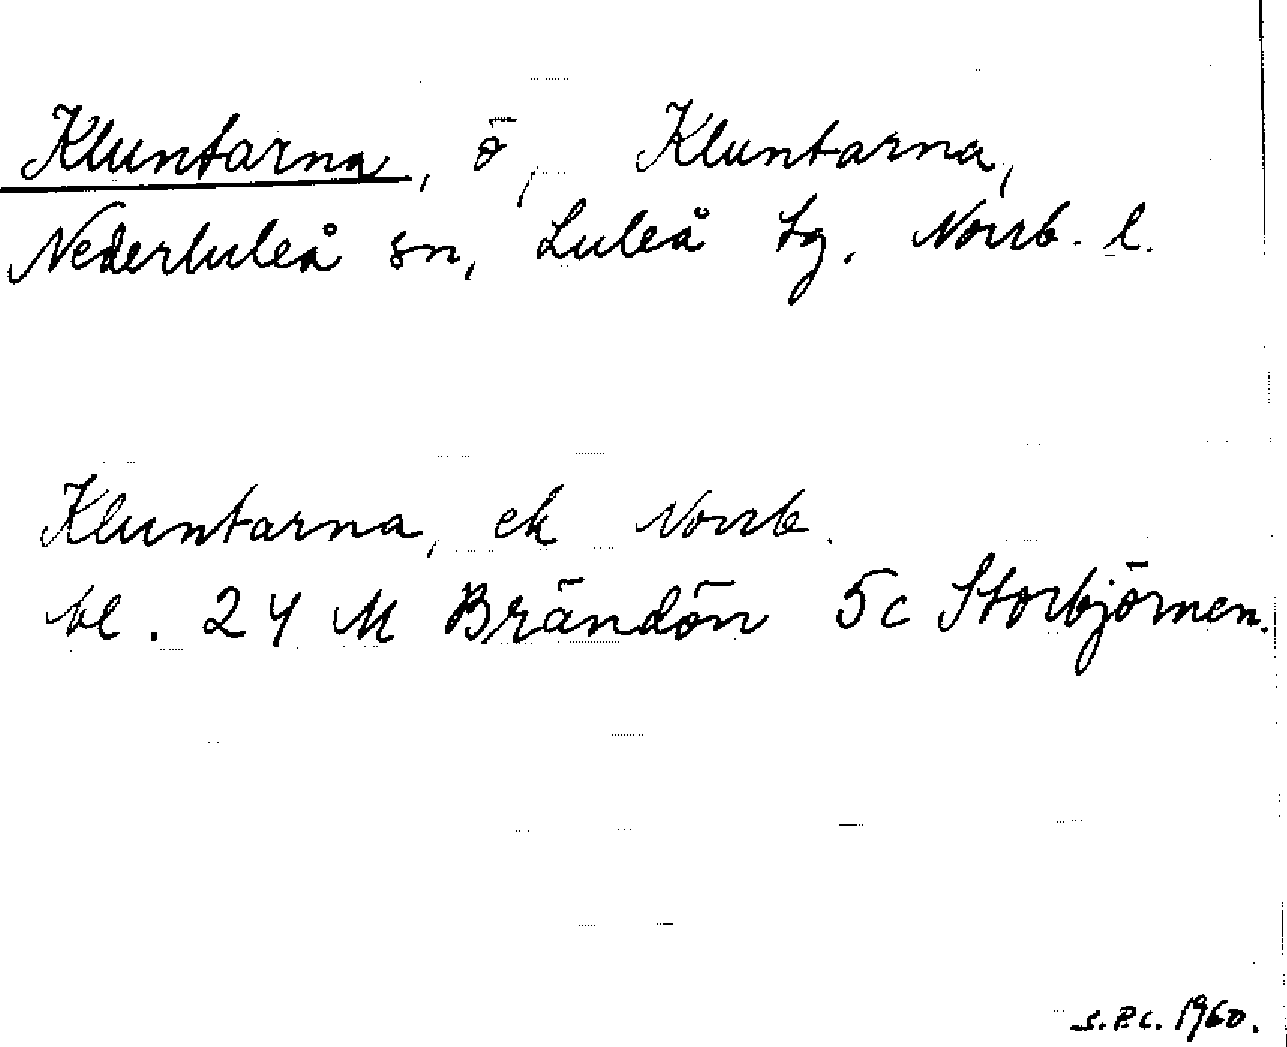 Kluntarna, ö, Kluntarna,
Nederluleå sn, Luleå tg. Norrb. l.
Kluntarna, ek Norrb.
bl. 24 M Brändön 5c Storbjörnen.
S.P.C. 1960.